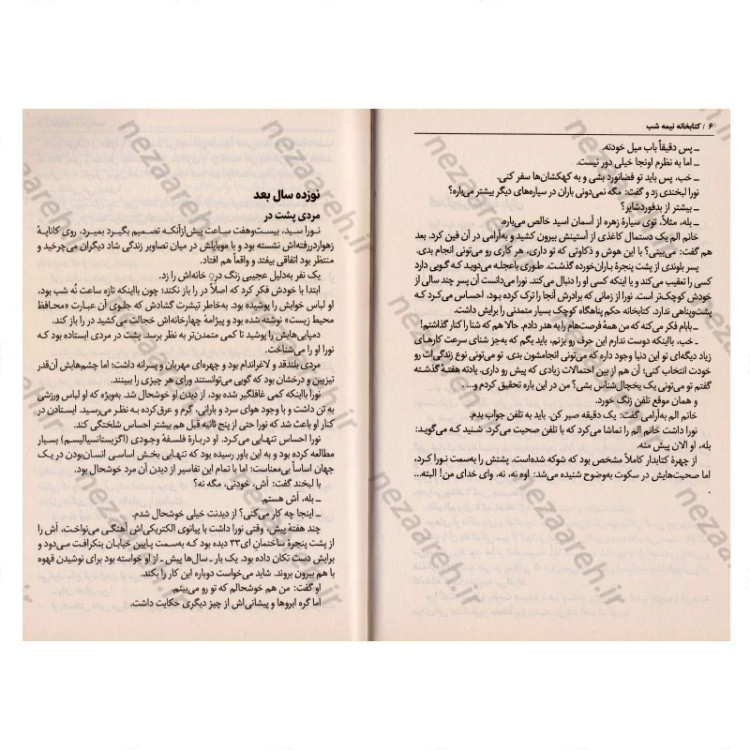 ۶ / کتابخانه نیمه شب
ـ پس دقیقاً باب میل خودته.
ـ اما به نظرم اونجا خیلی دور نیست.
ـ خب، پس باید تو فضانورد بشی و به کهکشان‌ها سفر کنی.
نورا لبخندی زد و گفت: مگه نمی‌دونی باران در سیاره‌های دیگر بیشتر می‌باره؟
ـ بیشتر از بدفوردشایر؟
ـ بله، مثلاً، توی سیارهٔ زهره از آسمان اسید خالص می‌باره.
خانم الم یک دستمال کاغذی از آستینش بیرون کشید و به‌آرامی در آن فین کرد. بعد
هم گفت: می‌بینی؟ با این هوش و ذکاوتی که تو داری، هر کاری رو می‌تونی انجام بدی.
پسر بلوندی از پشت پنجرهٔ باران‌خورده گذشت. طوری باعجله می‌دوید که گویی دارد
کسی را تعقیب می‌کند و یا اینکه کسی او را دنبال می‌کند. نورا می‌دانست آن پسر چند سالی از
خودش کوچک‌تر است. نورا از زمانی که برادرش آنجا را ترک کرده بود، احساس می‌کرد که
پشت‌وپناهی ندارد. کتابخانه حکم پناهگاه کوچک بسیار متمدنی را برایش داشت.
ـ بابام فکر می‌کنه که من همهٔ فرصت‌هام رو به هدر دادم. حالا هم که شنا را کنار گذاشتم!
ـ خب، بااینکه دوست ندارم این حرف رو بزنم، باید بگم که به‌جز شنای سرعت کارهای
زیاد دیگه‌ای تو این دنیا وجود داره که می‌تونی انجامشون بدی. تو می‌تونی نوع زندگی‌ات رو
خودت انتخاب کنی؛ آن هم از بین احتمالات زیادی که پیش رو داری. یادته هفتهٔ گذشته
گفتم تو می‌تونی یک یخچال‌شناس بشی؟ من در این باره تحقیق کردم و....
و همان موقع تلفن زنگ خورد.
خانم الم به‌آرامی گفت: یک دقیقه صبر کن. باید به تلفن جواب بدم.
نورا داشت خانم الم را تماشا می‌کرد که با تلفن صحبت می‌کرد. شنید که می‌گوید:
بله، او الان پیش منه.
از چهرهٔ کتابدار کاملاً مشخص بود که شوکه شده‌است. پشتش را به‌سمت نورا کرد،
اما صحبت‌هایش در سکوت به‌وضوح شنیده می‌شد: اوه نه، نه، وای خدای من! البته...
.
نوزده سال بعد
مردی پشت در
نورا سید، بیست‌وهفت ساعت پیش‌ازآنکه تصمیم بگیرد بمیرد، روی کاناپهٔ
زهواردررفته‌اش نشسته بود و با موبایلش در میان تصاویر زندگی شاد دیگران می‌چرخید و
منتظر بود اتفاقی بیفتد و واقعاً هم افتاد.
یک نفر به‌دلیل عجیبی زنگ درِ خانه‌اش را زد.
ابتدا با خودش فکر کرد که اصلاً در را باز نکند؛ چون بااینکه تازه ساعت نُه شب بود،
او لباس خوابش را پوشیده بود. به‌خاطر تیشرت گشادش که جلوی آن عبارت «محافظ
محیط زیست» نوشته شده بود و پیژامهٔ چهارخانه‌اش خجالت می‌کشید در را باز کند.
دمپایی‌هایش را پوشید تا کمی متمدن‌تر به نظر برسد. پشت در مردی ایستاده بود که
نورا او را می‌شناخت.
مردی بلندقد و لاغراندام بود و چهره‌ای مهربان و پسرانه داشت؛ اما چشم‌هایش آن‌قدر
تیزبین و درخشان بود که گویی می‌توانستند ورای هر چیزی را ببینند.
نورا بااینکه کمی غافلگیر شده بود، از دیدن او خوشحال شد. به‌ویژه که او لباس ورزشی
به تن داشت و با وجود هوای سرد و بارانی، گرم و عرق‌کرده به نظر می‌رسید. ایستادن در
کنار او باعث شد که نورا حتی از پنج ثانیه قبل هم بیشتر احساس شلختگی کند.
نورا احساس تنهایی می‌کرد. او دربارهٔ فلسفهٔ وجودی (اگزیستانسیالیسم) بسیار
مطالعه کرده بود و به این باور رسیده بود که تنهایی بخش اساسی انسان‌بودن در یک
جهان اساساً بی‌معناست؛ اما با تمام این تفاسیر از دیدن آن مرد خوشحال بود.
با لبخند گفت: اَش، خودتی، مگه نه؟
ـ بله، اَش هستم.
ـ اینجا چه کار می‌کنی؟ از دیدنت خیلی خوشحال شدم.
چند هفتهٔ پیش، وقتی نورا داشت با پیانوی الکتریکی‌اش آهنگی می‌نواخت، اَش را
از پشت پنجرهٔ ساختمان ۳۳ای دیده بود که به‌سمت پایین خیابان بنکرافت می‌دود و
برایش دست تکان داده بود. یک بار ـ سال‌ها پیش ـ از او خواسته بود برای نوشیدن قهوه
با هم بیرون بروند. شاید می‌خواست دوباره این کار را بکند.
او گفت: من هم خوشحالم که تو رو می‌بینم.
اما گره ابروها و پیشانی‌اش از چیز دیگری حکایت داشت.
nezaareh.ir